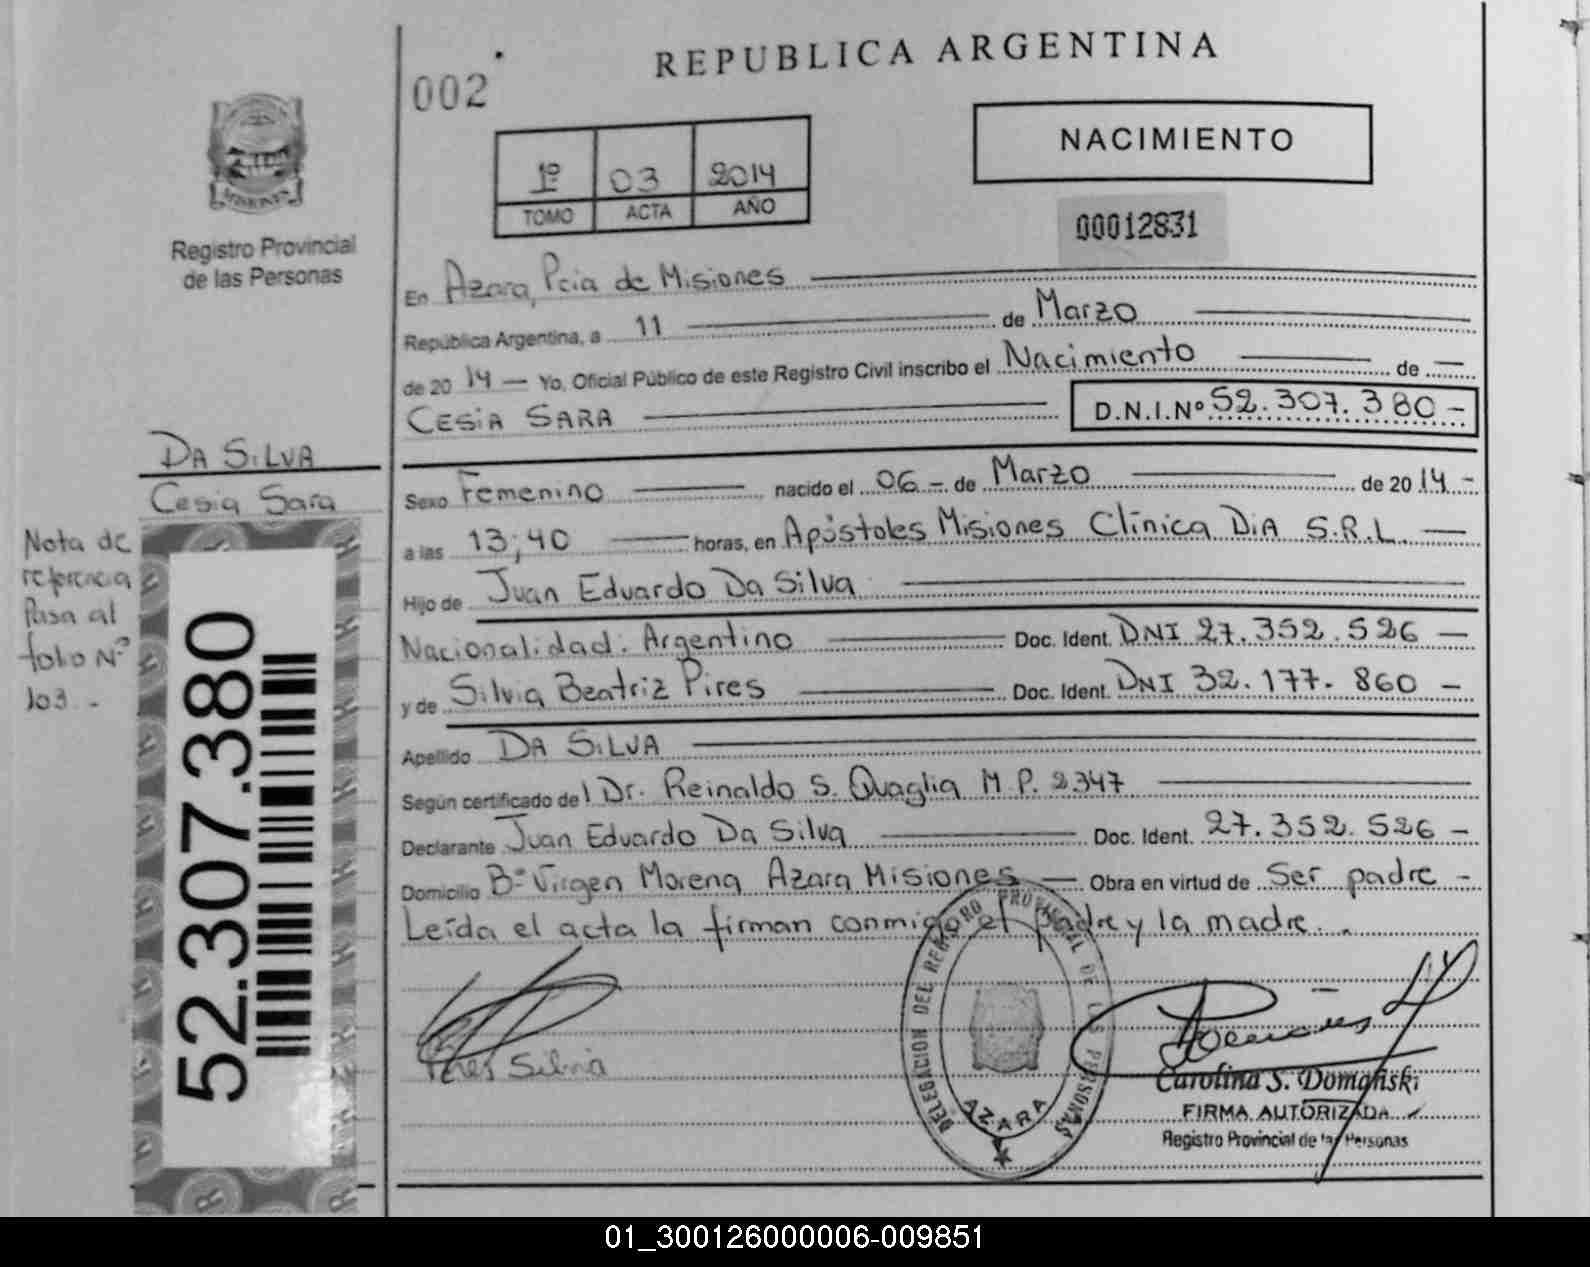 REPUBLICA ARGENTINA
002
NACIMIENTO
1º 03 2014
TOMO ACTA AÑO
00012831
MISIONES
Registro Provincial
de las Personas
En Azara, Pcia de Misiones
República Argentina, a 11 de Marzo
de 2014 — Yo, Oficial Público de este Registro Civil inscribo el Nacimiento de —
CESIA SARA D.N.I.Nº 52.307.380 -
DA SILVA
Cesia Sara
Nota de
referencia
Pasa al
folio Nº
103 -
52.307.380
Sexo Femenino nacido el 06 - de Marzo de 2014 -
a las 13;40 horas, en Apóstoles Misiones Clínica DiA S.R.L. —
Hijo de Juan Eduardo Da Silva
Nacionalidad: Argentino Doc. Ident. DNI 27.352.526 —
y de Silvia Beatriz Pires Doc. Ident. DNI 32.177.860 —
Apellido DA SILVA
Según certificado del Dr. Reinaldo S. Quaglia M.P. 2347
Declarante Juan Eduardo Da Silva Doc. Ident. 27.352.526 —
Domicilio Bº Virgen Morena Azara Misiones — Obra en virtud de Ser padre -
Leída el acta la firman conmigo el padre y la madre.
Pires Silvia
DELEGACION DEL REGISTRO PROVINCIAL DE LAS PERSONAS
AZARA
Carolina S. Domański
FIRMA AUTORIZADA
Registro Provincial de las Personas
01_300126000006-009851